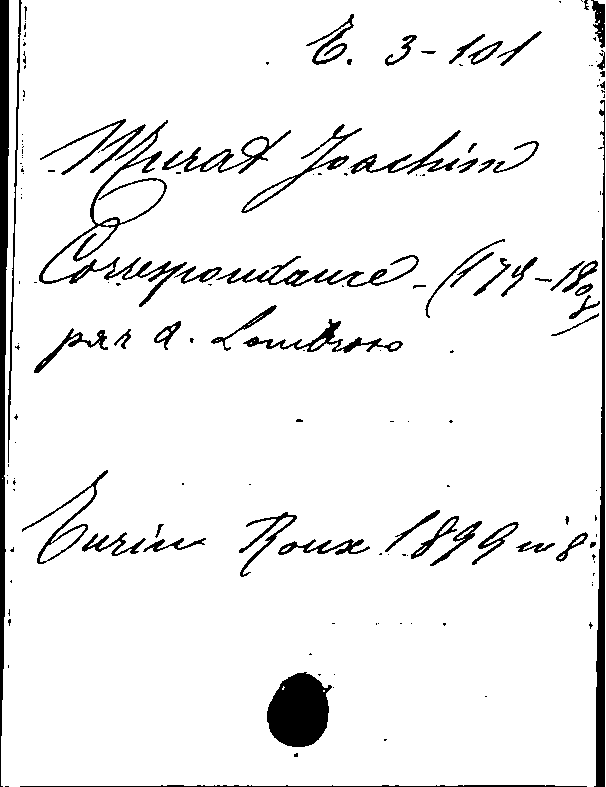 E. 3-101
Murat Joachim
Correspondance - (179-1808)
par A. Lombroso
Turin Roux 1899 in 8.